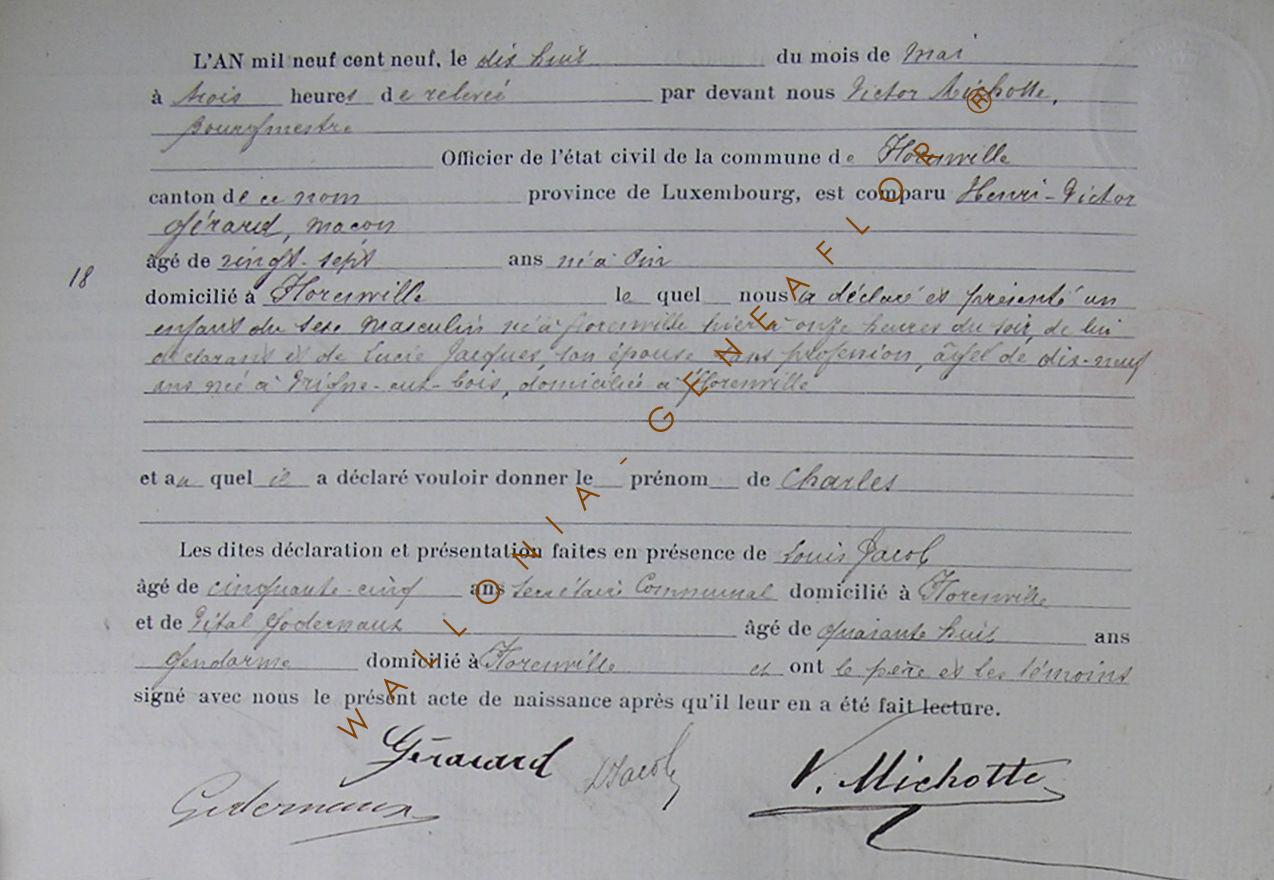 L'AN mil neuf cent neuf, le dix huit du mois de Mai
à trois heures de relevée par devant nous Victor Michotte,
Bourgmestre
Officier de l'état civil de la commune de Florenville
canton de ce nom province de Luxembourg, est comparu Henri-Victor
Gérard, maçon
âgé de vingt-sept ans né à Pin
18
domicilié à Florenville le quel nous a déclaré et présenté un
enfant du sexe masculin né à Florenville hier à onze heures du soir, de lui
déclarant et de Lucie Jacques, son épouse sans profession, âgée de dix-neuf
ans née à Vrigne-aux-bois, domiciliée à Florenville
et au quel il a déclaré vouloir donner le prénom de Charles
Les dites déclaration et présentation faites en présence de Louis Jacob
âgé de cinquante-cinq ans Secrétaire Communal domicilié à Florenville
et de Vital Godernaux âgé de quarante huit ans
Gendarme domicilié à Florenville et ont le père et les témoins
signé avec nous le présent acte de naissance après qu'il leur en a été fait lecture.
Gérard LJacob V. Michotte
Godernaux
WALLONIA-GENEAFLOR ®